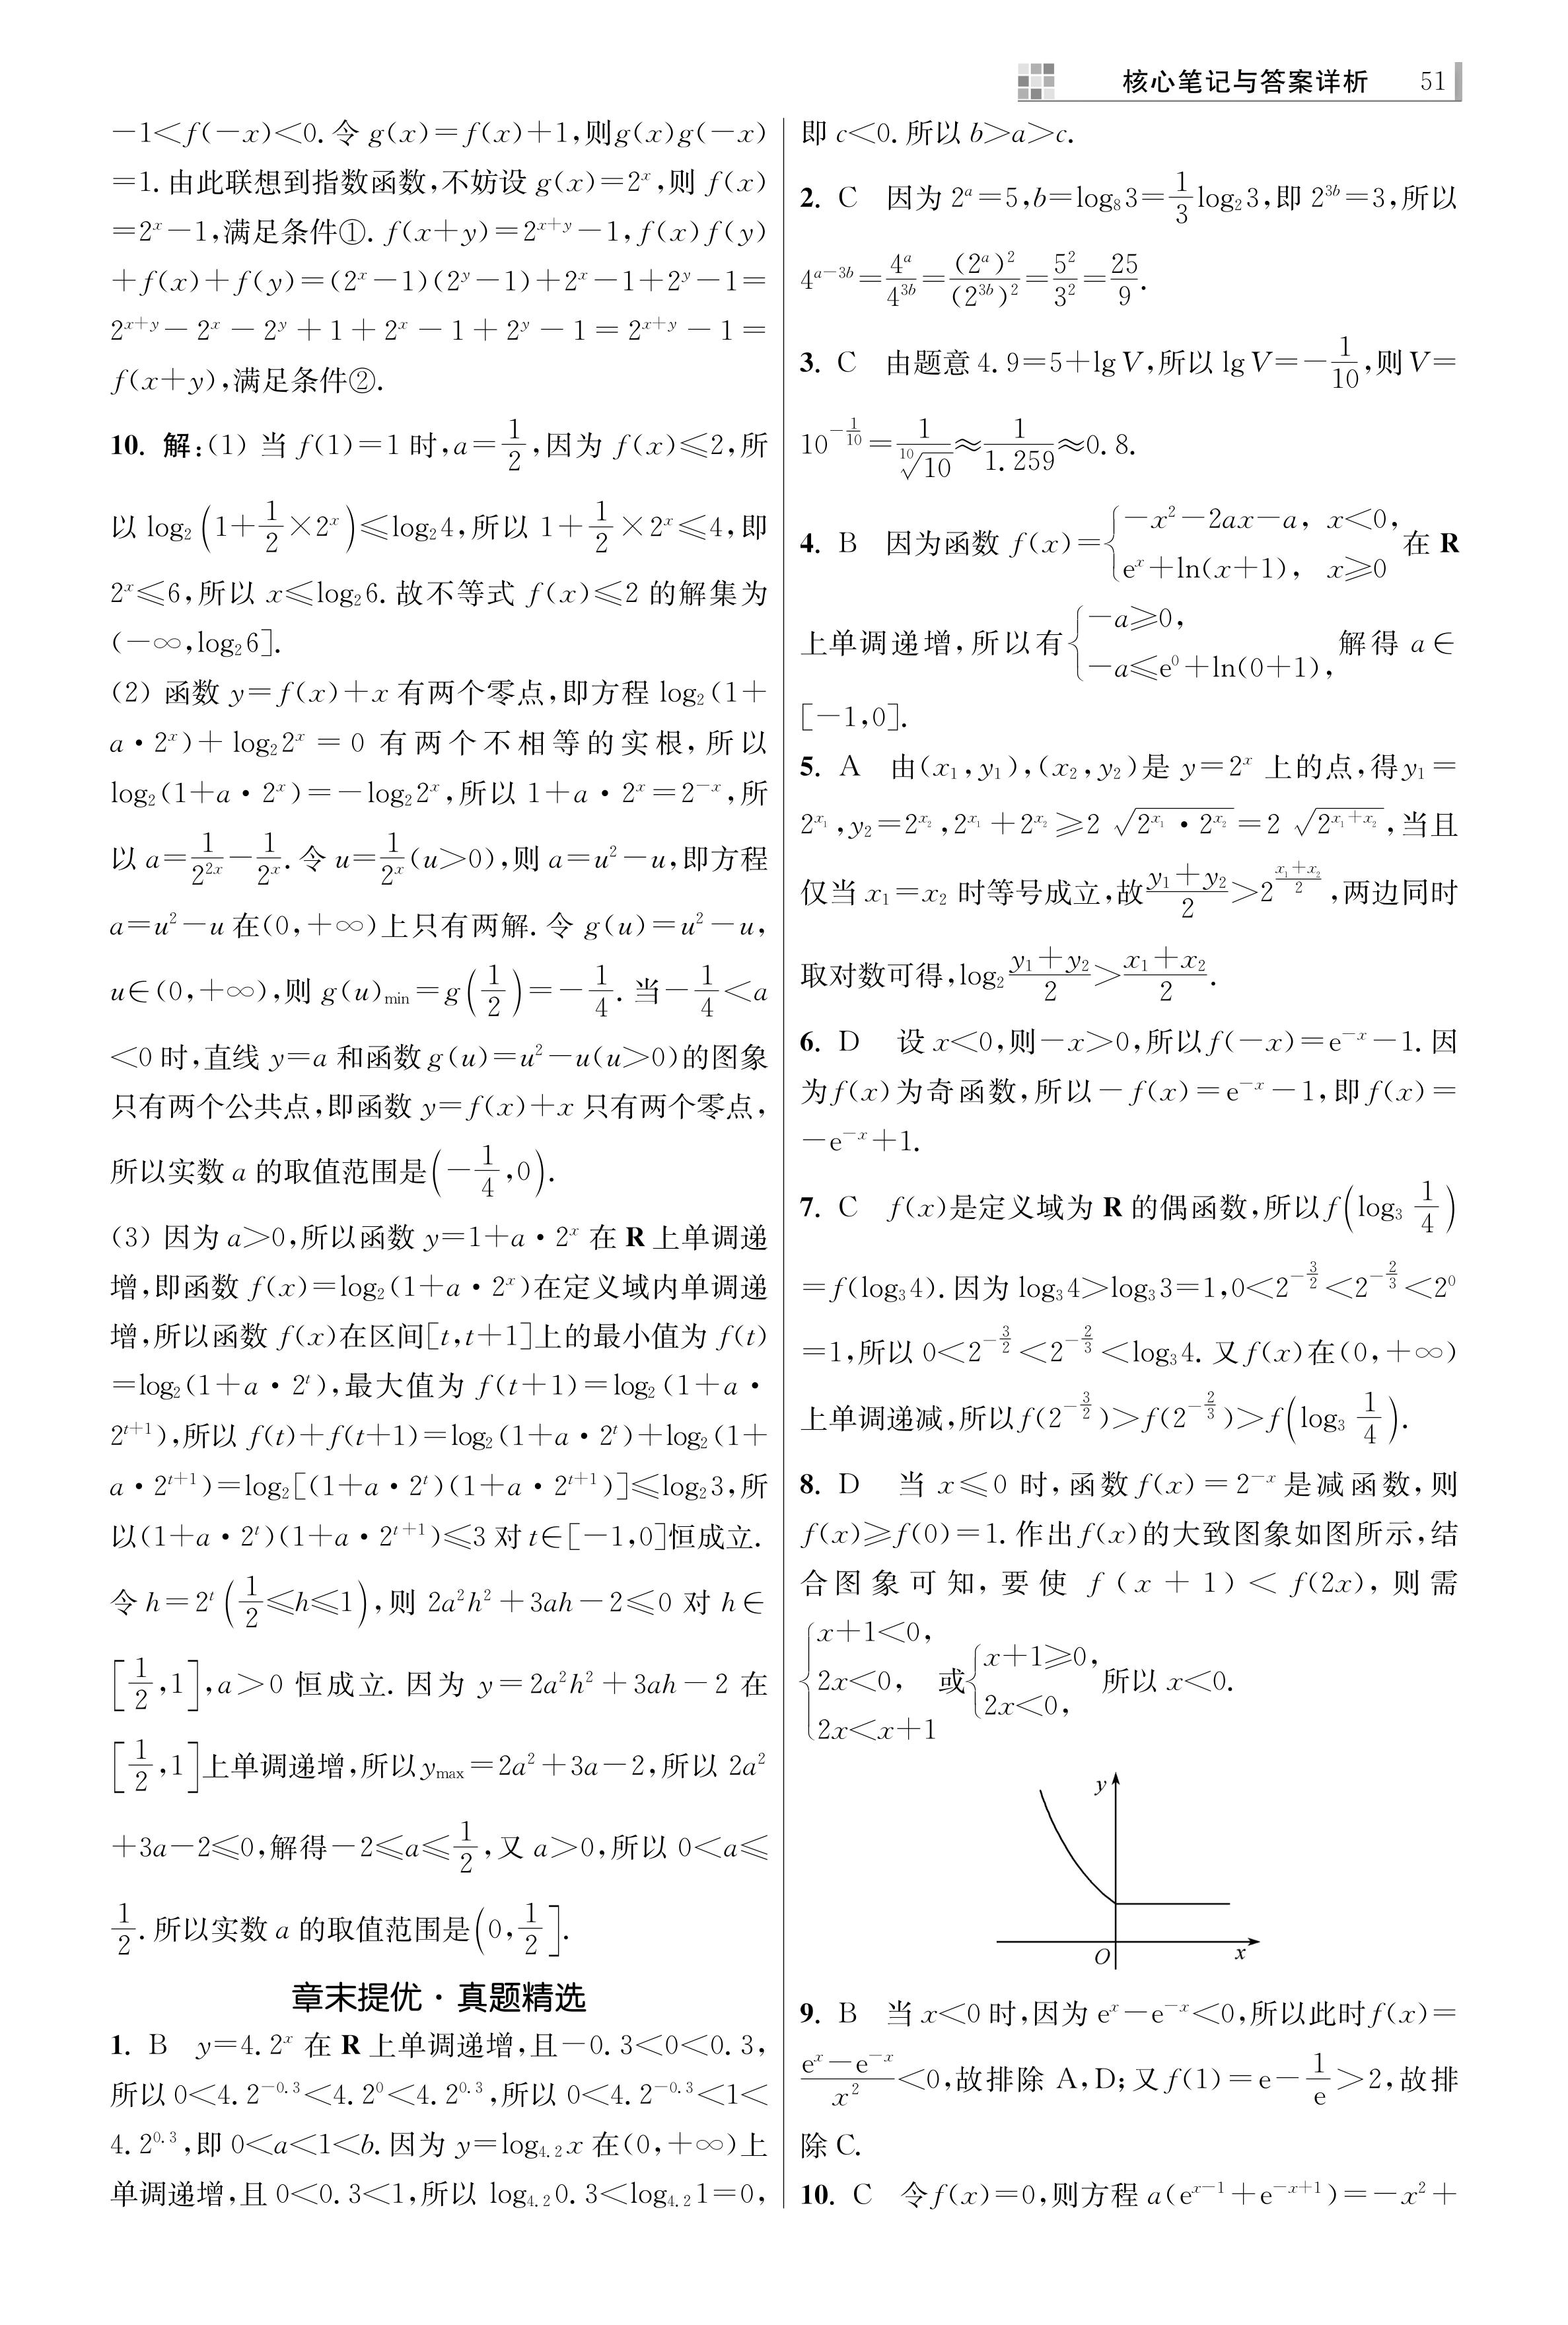 核心笔记与答案详析 51
－1＜f(－x)＜0. 令 g(x)＝f(x)＋1,则g(x)g(－x)
＝1. 由此联想到指数函数,不妨设 g(x)＝2ˣ,则 f(x)
＝2ˣ－1,满足条件①. f(x＋y)＝2^{x＋y}－1,f(x)f(y)
＋f(x)＋f(y)＝(2ˣ－1)(2^y－1)＋2ˣ－1＋2^y－1＝
2^{x＋y}－2ˣ－2^y＋1＋2ˣ－1＋2^y－1＝2^{x＋y}－1＝
f(x＋y),满足条件②.
10. 解:(1) 当 f(1)＝1 时,a＝1/2,因为 f(x)≤2,所
以 log₂(1＋1/2×2ˣ)≤log₂4,所以 1＋1/2×2ˣ≤4,即
2ˣ≤6,所以 x≤log₂6. 故不等式 f(x)≤2 的解集为
(－∞,log₂6].
(2) 函数 y＝f(x)＋x 有两个零点,即方程 log₂(1＋
a·2ˣ)＋log₂2ˣ＝0 有两个不相等的实根,所以
log₂(1＋a·2ˣ)＝－log₂2ˣ,所以 1＋a·2ˣ＝2^{－x},所
以 a＝1/2^{2x}－1/2ˣ. 令 u＝1/2ˣ(u＞0),则 a＝u²－u,即方程
a＝u²－u 在(0,＋∞)上只有两解. 令 g(u)＝u²－u,
u∈(0,＋∞),则 g(u)min＝g(1/2)＝－1/4. 当－1/4＜a
＜0 时,直线 y＝a 和函数 g(u)＝u²－u(u＞0)的图象
只有两个公共点,即函数 y＝f(x)＋x 只有两个零点,
所以实数 a 的取值范围是(－1/4,0).
(3) 因为 a＞0,所以函数 y＝1＋a·2ˣ 在 R 上单调递
增,即函数 f(x)＝log₂(1＋a·2ˣ)在定义域内单调递
增,所以函数 f(x)在区间[t,t＋1]上的最小值为 f(t)
＝log₂(1＋a·2^t),最大值为 f(t＋1)＝log₂(1＋a·
2^{t＋1}),所以 f(t)＋f(t＋1)＝log₂(1＋a·2^t)＋log₂(1＋
a·2^{t＋1})＝log₂[(1＋a·2^t)(1＋a·2^{t＋1})]≤log₂3,所
以(1＋a·2^t)(1＋a·2^{t＋1})≤3 对 t∈[－1,0]恒成立.
令 h＝2^t(1/2≤h≤1),则 2a²h²＋3ah－2≤0 对 h∈
[1/2,1],a＞0 恒成立. 因为 y＝2a²h²＋3ah－2 在
[1/2,1]上单调递增,所以ymax＝2a²＋3a－2,所以 2a²
＋3a－2≤0,解得－2≤a≤1/2,又 a＞0,所以 0＜a≤
1/2. 所以实数 a 的取值范围是(0,1/2].
章末提优·真题精选
1. B y＝4.2ˣ 在 R 上单调递增,且－0.3＜0＜0.3,
所以 0＜4.2^{－0.3}＜4.2⁰＜4.2^{0.3},所以 0＜4.2^{－0.3}＜1＜
4.2^{0.3},即 0＜a＜1＜b. 因为 y＝log_{4.2}x 在(0,＋∞)上
单调递增,且 0＜0.3＜1,所以 log_{4.2}0.3＜log_{4.2}1＝0,
即 c＜0. 所以 b＞a＞c.
2. C 因为 2^a＝5,b＝log₈3＝1/3 log₂3,即 2^{3b}＝3,所以
4^{a－3b}＝4^a/4^{3b}＝(2^a)²/(2^{3b})²＝5²/3²＝25/9.
3. C 由题意 4.9＝5＋lg V,所以 lg V＝－1/10,则 V＝
10^{－1/10}＝1/¹⁰√10≈1/1.259≈0.8.
4. B 因为函数 f(x)＝{－x²－2ax－a, x＜0, eˣ＋ln(x＋1), x≥0 在 R
上单调递增,所以有{－a≥0, －a≤e⁰＋ln(0＋1), 解得 a∈
[－1,0].
5. A 由(x₁,y₁),(x₂,y₂)是 y＝2ˣ 上的点,得y₁＝
2^{x₁},y₂＝2^{x₂},2^{x₁}＋2^{x₂}≥2√(2^{x₁}·2^{x₂})＝2√(2^{x₁＋x₂}),当且
仅当 x₁＝x₂ 时等号成立,故(y₁＋y₂)/2＞2^{(x₁＋x₂)/2},两边同时
取对数可得,log₂(y₁＋y₂)/2＞(x₁＋x₂)/2.
6. D 设 x＜0,则－x＞0,所以f(－x)＝e^{－x}－1. 因
为f(x)为奇函数,所以－f(x)＝e^{－x}－1,即f(x)＝
－e^{－x}＋1.
7. C f(x)是定义域为 R 的偶函数,所以f(log₃ 1/4)
＝f(log₃4). 因为 log₃4＞log₃3＝1,0＜2^{－3/2}＜2^{－2/3}＜2⁰
＝1,所以 0＜2^{－3/2}＜2^{－2/3}＜log₃4. 又f(x)在(0,＋∞)
上单调递减,所以f(2^{－3/2})＞f(2^{－2/3})＞f(log₃ 1/4).
8. D 当 x≤0 时,函数 f(x)＝2^{－x}是减函数,则
f(x)≥f(0)＝1. 作出f(x)的大致图象如图所示,结
合图象可知,要使 f(x＋1)＜f(2x),则需
{x＋1＜0, 2x＜0, 2x＜x＋1 或{x＋1≥0, 2x＜0, 所以 x＜0.
y
O x
9. B 当 x＜0 时,因为 eˣ－e^{－x}＜0,所以此时f(x)＝
(eˣ－e^{－x})/x²＜0,故排除 A,D;又f(1)＝e－1/e＞2,故排
除 C.
10. C 令f(x)＝0,则方程 a(e^{x－1}＋e^{－x＋1})＝－x²＋